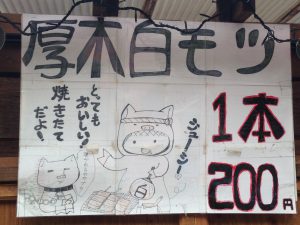 厚木白モツ
とっても
おいしい!
焼きたて
だよ
ジュージュー
白
1本
200円